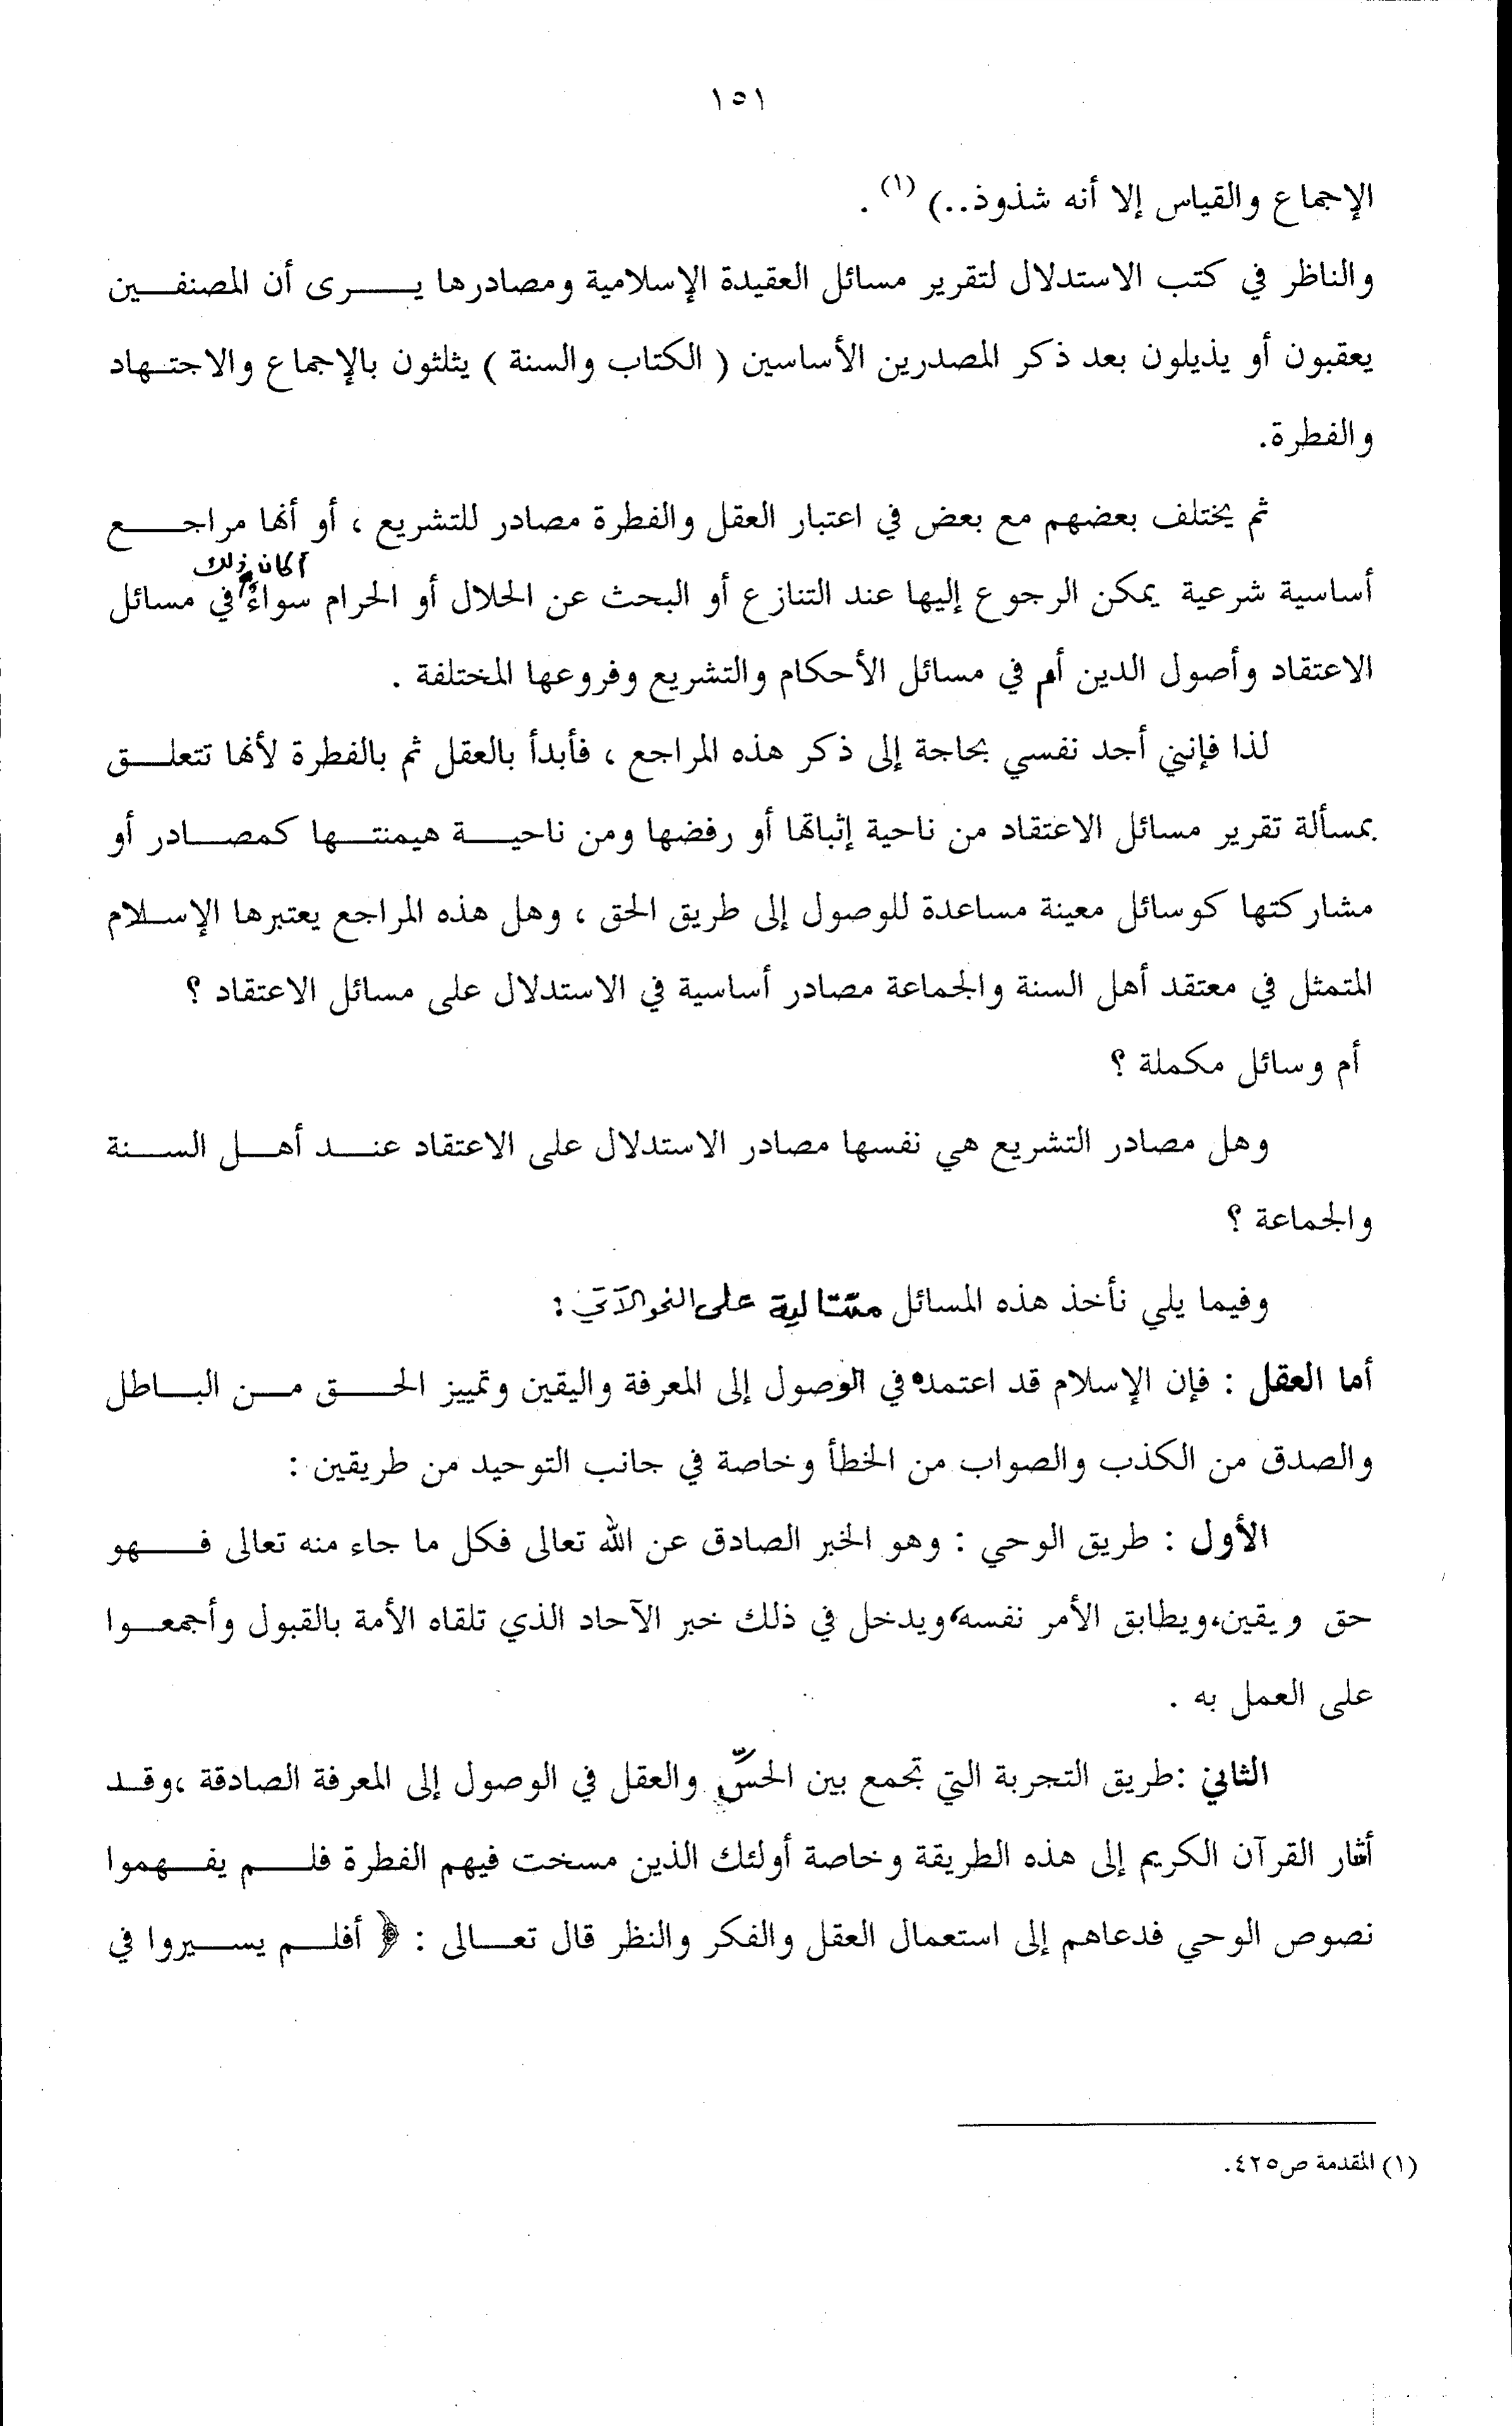 ١٥١
الإجماع والقياس إلا أنه شذوذ..) (١) .
والناظر في كتب الاستدلال لتقرير مسائل العقيدة الإسلامية ومصادرها يرى أن المصنفين
يعقبون أو يذيلون بعد ذكر المصدرين الأساسين ( الكتاب والسنة ) يثلثون بالإجماع والاجتهاد
والفطرة.
ثم يختلف بعضهم مع بعض في اعتبار العقل والفطرة مصادر للتشريع ، أو أنها مراجع
أكان ذلك
أساسية شرعية يمكن الرجوع إليها عند التنازع أو البحث عن الحلال أو الحرام سواءٌ في مسائل
الاعتقاد وأصول الدين أم في مسائل الأحكام والتشريع وفروعها المختلفة .
لذا فإنني أجد نفسي بحاجة إلى ذكر هذه المراجع ، فأبدأ بالعقل ثم بالفطرة لأنها تتعلق
بمسألة تقرير مسائل الاعتقاد من ناحية إثباتها أو رفضها ومن ناحية هيمنتها كمصادر أو
مشاركتها كوسائل معينة مساعدة للوصول إلى طريق الحق ، وهل هذه المراجع يعتبرها الإسلام
المتمثل في معتقد أهل السنة والجماعة مصادر أساسية في الاستدلال على مسائل الاعتقاد ؟
أم وسائل مكملة ؟
وهل مصادر التشريع هي نفسها مصادر الاستدلال على الاعتقاد عند أهل السنة
والجماعة ؟
وفيما يلي نأخذ هذه المسائل متتالية على النحو الآتي :
أما العقل : فإن الإسلام قد اعتمده في الوصول إلى المعرفة واليقين وتمييز الحق من الباطل
والصدق من الكذب والصواب من الخطأ وخاصة في جانب التوحيد من طريقين :
الأول : طريق الوحي : وهو الخبر الصادق عن الله تعالى فكل ما جاء منه تعالى فهو
حق ويقين،ويطابق الأمر نفسه،ويدخل في ذلك خبر الآحاد الذي تلقاه الأمة بالقبول وأجمعوا
على العمل به .
الثاني :طريق التجربة التي تجمع بين الحسِّ والعقل في الوصول إلى المعرفة الصادقة ،وقد
أشار القرآن الكريم إلى هذه الطريقة وخاصة أولئك الذين مسخت فيهم الفطرة فلم يفهموا
نصوص الوحي فدعاهم إلى استعمال العقل والفكر والنظر قال تعالى : ﴿ أفلم يسيروا في
(١) المقدمة ص٤٢٥.